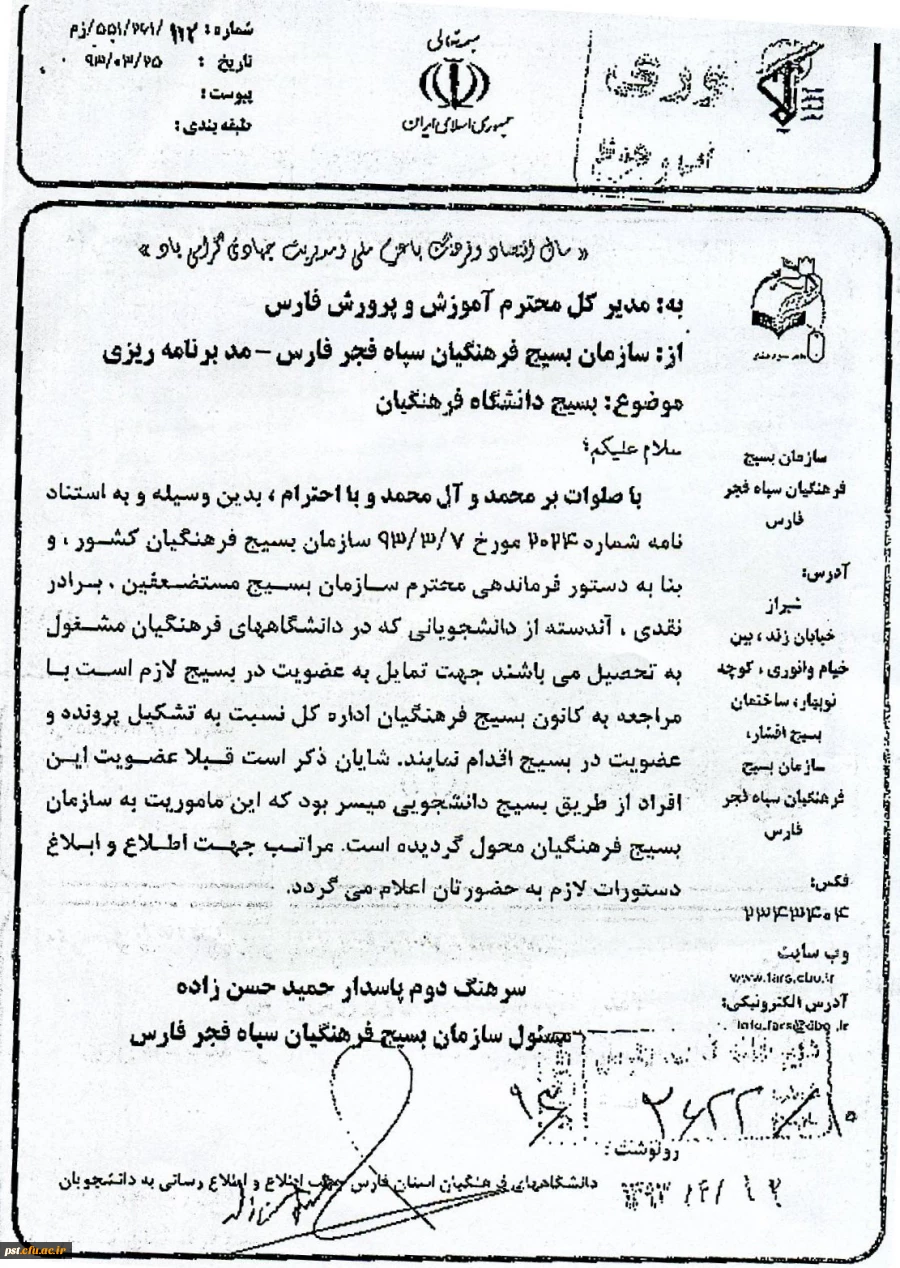 بسمه تعالی
جمهوری اسلامی ایران
شماره: ۱۱۲/۲۶۱/۵۵۱/زم
تاریخ : ۹۳/۰۳/۲۵
پیوست:
طبقه بندی:
« سال اقتصاد و فرهنگ با عزم ملی و مدیریت جهادی گرامی باد »
به: مدیر کل محترم آموزش و پرورش فارس
از: سازمان بسیج فرهنگیان سپاه فجر فارس – مد برنامه ریزی
موضوع: بسیج دانشگاه فرهنگیان
سلام علیکم؛
با صلوات بر محمد و آل محمد و با احترام ، بدین وسیله و به استناد
نامه شماره ۲۰۲۴ مورخ ۹۳/۳/۷ سازمان بسیج فرهنگیان کشور ، و
بنا به دستور فرماندهی محترم سازمان بسیج مستضعفین ، برادر
نقدی ، آندسته از دانشجویانی که در دانشگاههای فرهنگیان مشغول
به تحصیل می باشند جهت تمایل به عضویت در بسیج لازم است با
مراجعه به کانون بسیج فرهنگیان اداره کل نسبت به تشکیل پرونده و
عضویت در بسیج اقدام نمایند. شایان ذکر است قبلا عضویت این
افراد از طریق بسیج دانشجویی میسر بود که این ماموریت به سازمان
بسیج فرهنگیان محول گردیده است. مراتب جهت اطلاع و ابلاغ
دستورات لازم به حضورتان اعلام می گردد.
سرهنگ دوم پاسدار حمید حسن زاده
مسئول سازمان بسیج فرهنگیان سپاه فجر فارس
سازمان بسیج
فرهنگیان سپاه فجر
فارس
آدرس:
شیراز
خیابان زند ، بین
خیام وانوری ، کوچه
نوبهار، ساختمان
بسیج اقشار،
سازمان بسیج
فرهنگیان سپاه فجر
فارس
فکس:
۲۳۴۲۴۰۴
وب سایت
آدرس الکترونیکی:
رونوشت :
دانشگاههای فرهنگیان استان فارس جهت اطلاع و اطلاع رسانی به دانشجویان
pst.cfu.ac.ir